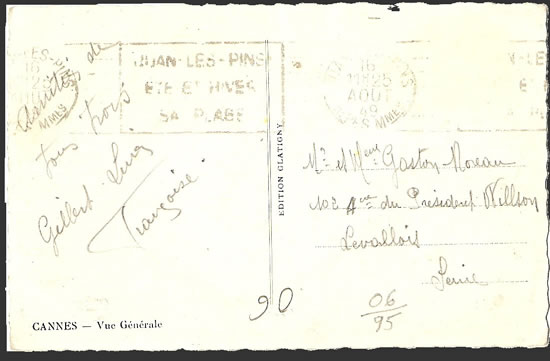 Amitiés de
tous trois
Gilbert Lucy
Françoise.
JUAN-LES-PINS
ÉTÉ ET HIVER
SA PLAGE
16
AOUT
EDITION GLATIGNY
Mr et Mme Gaston Moreau
102 Aue du Président Willson
Levallois
Seine
90
06
95
CANNES — Vue Générale